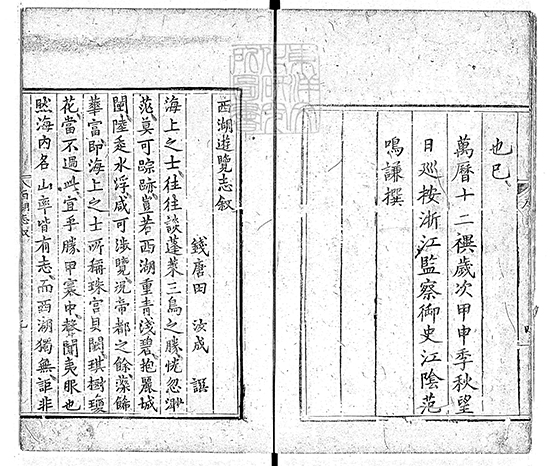 也已
萬曆十二禩歲次甲申季秋望
日巡按浙江監察御史江陰范
鳴謙撰
西湖遊覽志叙
錢唐田 汝成 譔
海上之士往往談蓬萊三島之勝恍忽渺
茫莫可踪跡豈若西湖重青淺碧抱麗城
闉陸水浮咸可涉覽況帝都之餘藻飾
華富即海上之士所稱珠宮貝闕琪樹瓊
花當不過此宜乎勝甲寰中聲聞夷服也
然海内名山率皆有志而西湖獨無詎非